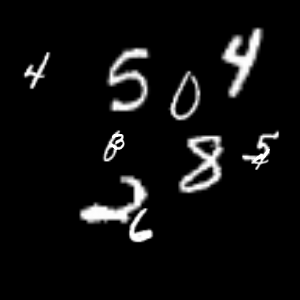 4 5 0 4
8 8 5
2 6